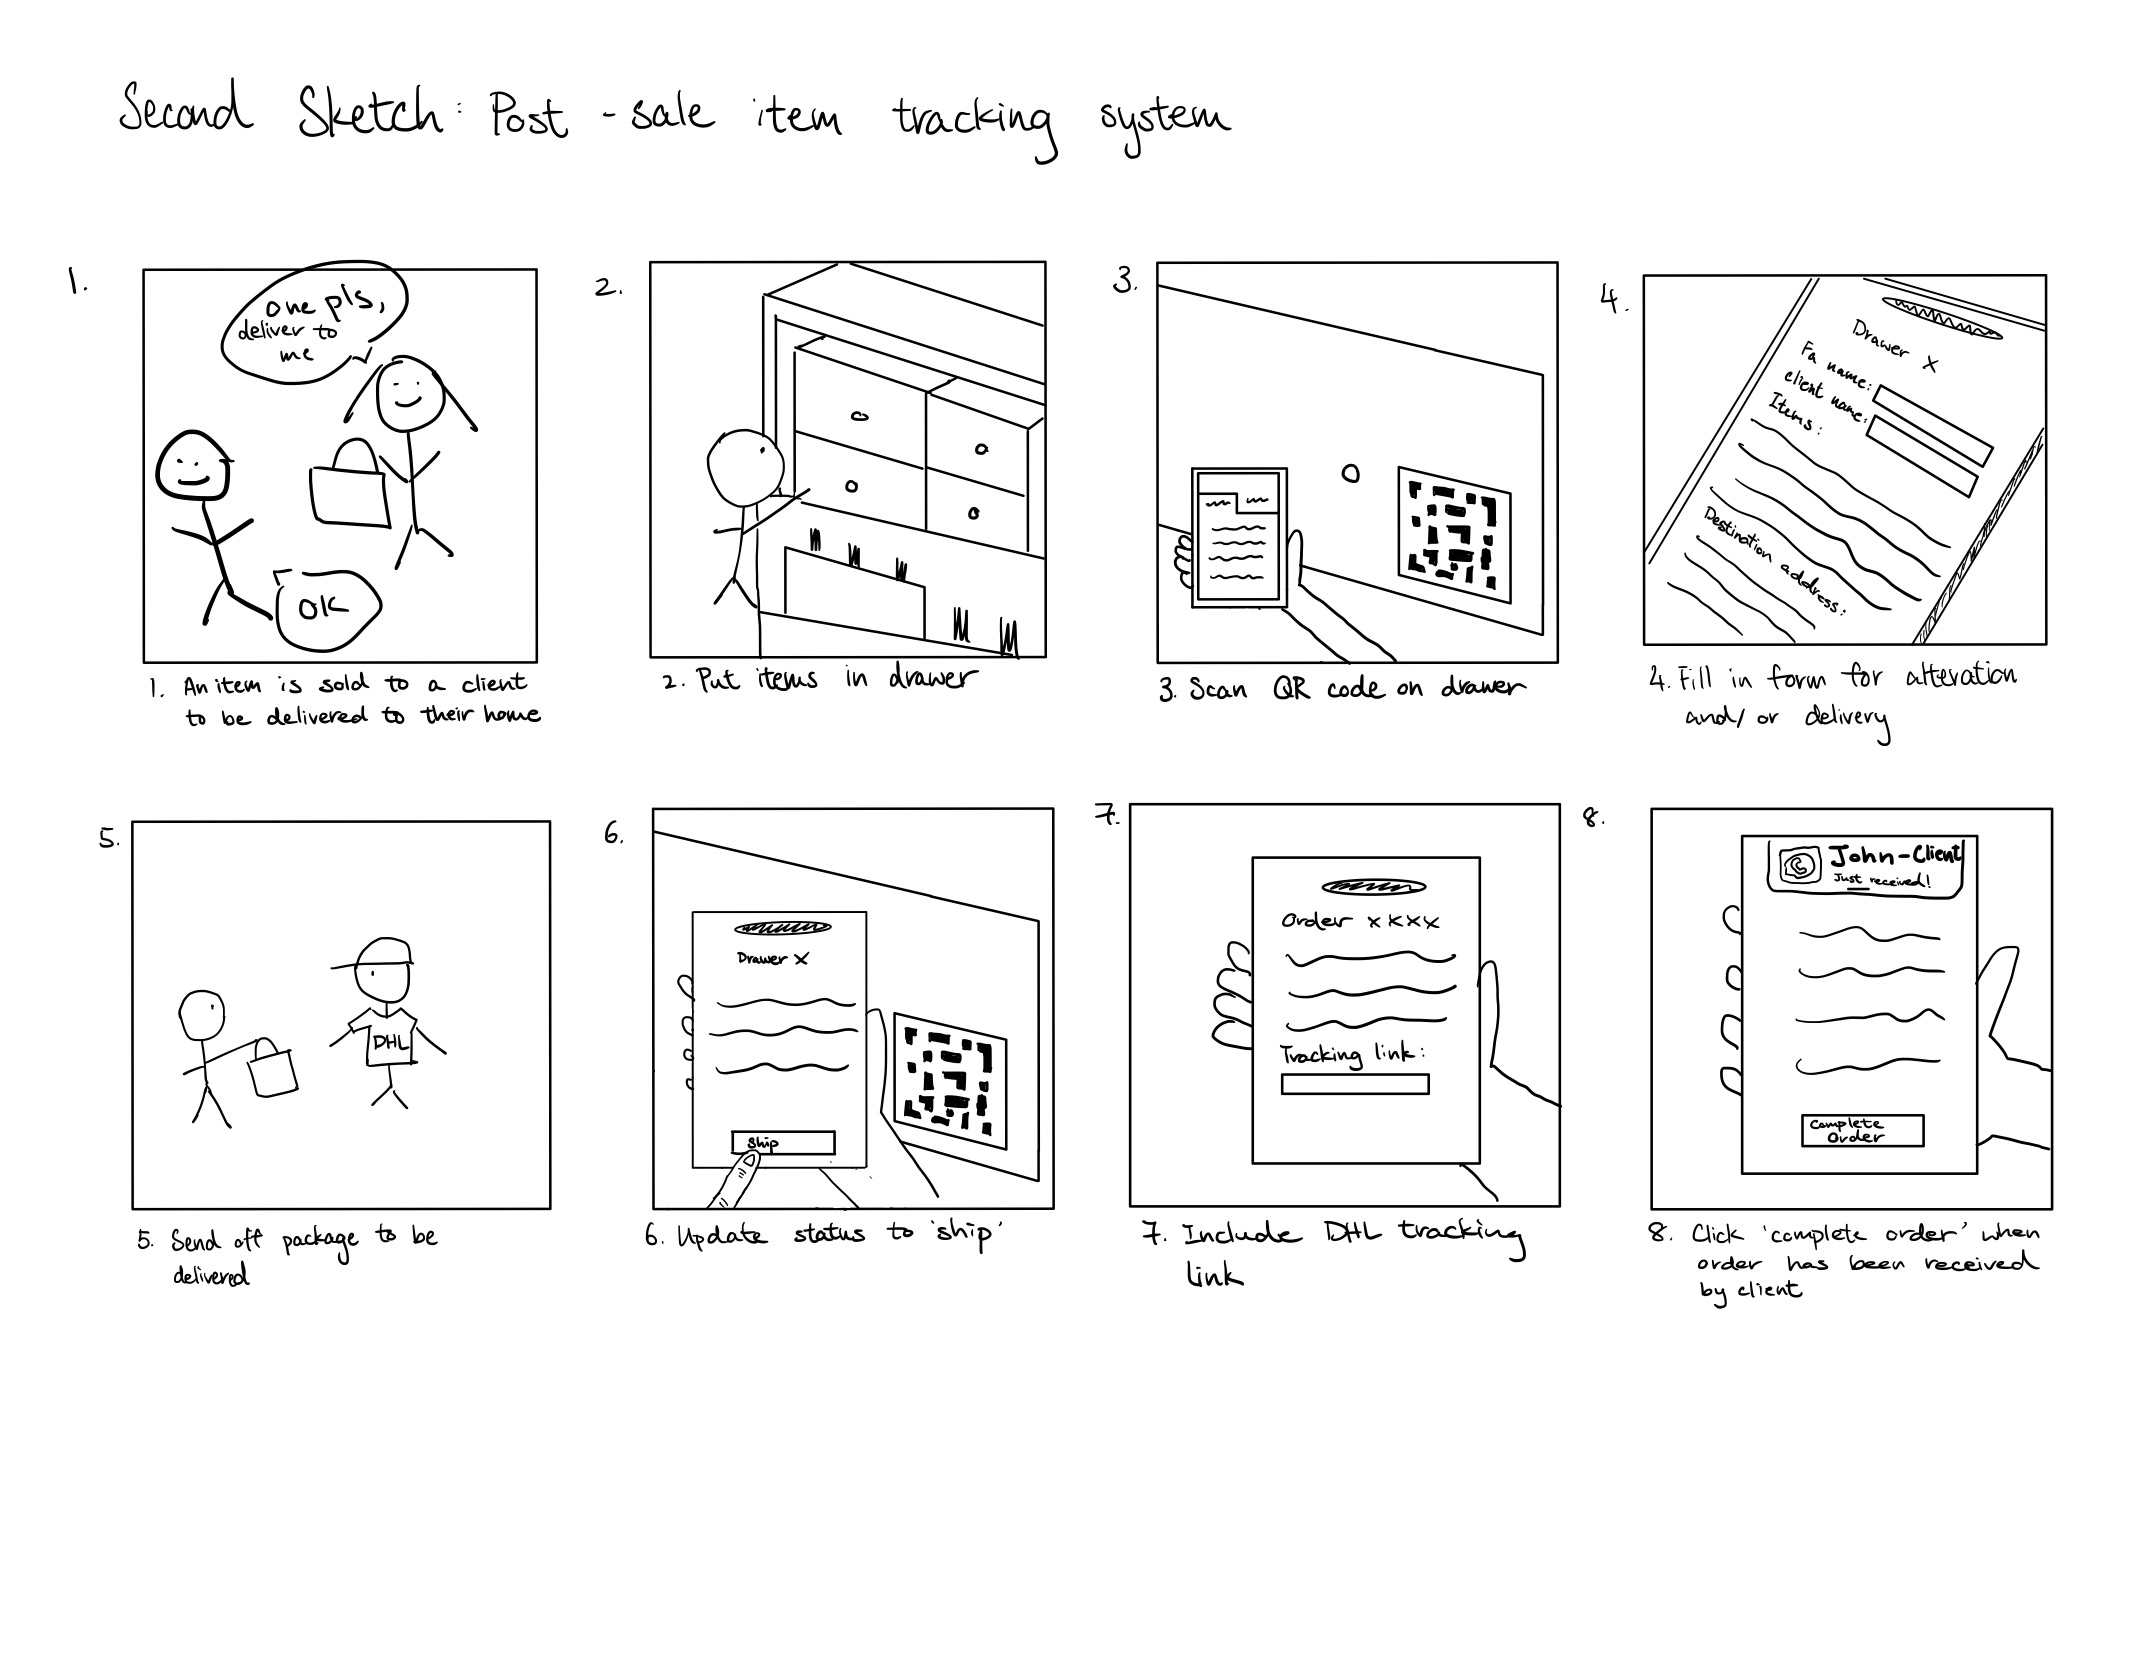 Second Sketch: Post-sale item tracking system
1.
one pls,
deliver to
me
OK
1. An item is sold to a client
to be delivered to their home
2.
2. Put items in drawer
3.
3. Scan QR code on drawer
4.
Drawer X
Fa name:
client name:
Items:
Destination address:
4. Fill in form for alteration
and/or delivery
5.
DHL
5. Send off package to be
delivered
6.
Drawer X
Ship
6. Update status to 'ship'
7.
Order xxxx
Tracking link:
7. Include DHL tracking
link
8.
John-Client
Just received!
Complete
Order
8. Click 'complete order' when
order has been received
by client